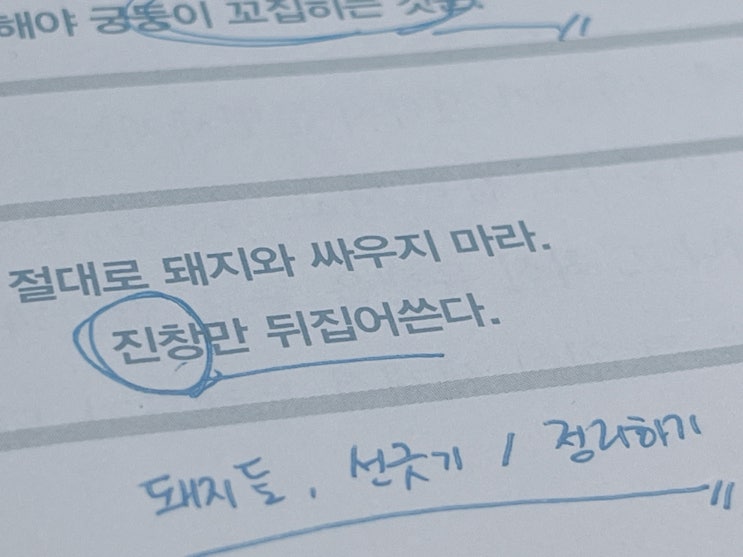 해야 궁뚱이 꼬집히는 것
절대로 돼지와 싸우지 마라.
진창만 뒤집어쓴다.
돼지들, 선긋기 / 정리하기